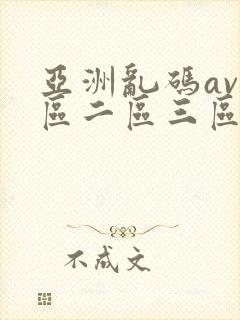 亞洲亂碼av
區二區三區
不成文